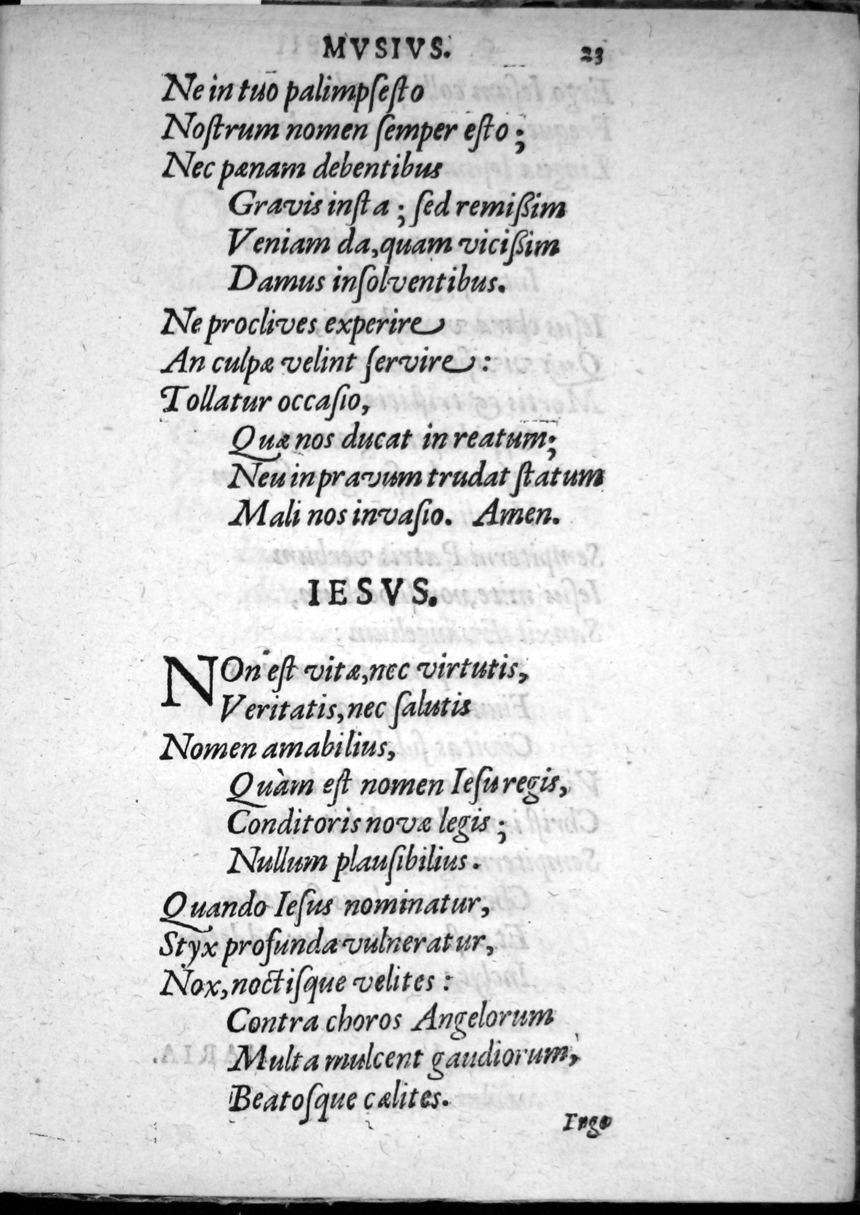 MVSIVS. 23
Ne in tuo palimpſeſto
Noſtrum nomen ſemper eſto;
Nec pænam debentibus
Gravis inſta; ſed remiſſim
Veniam da, quam viciſſim
Damus inſolventibus.
Ne proclives experire
An culpæ velint ſervire:
Tollatur occaſio,
Quæ nos ducat in reatum;
Neu in pravum trudat ſtatum
Mali nos invaſio. Amen.
IESVS.
NOn eſt vitæ, nec virtutis,
Veritatis, nec ſalutis
Nomen amabilius,
Quàm eſt nomen Ieſu regis,
Conditoris novæ legis;
Nullum plauſibilius.
Quando Ieſus nominatur,
Styx profunda vulneratur,
Nox, noctiſque velites:
Contra choros Angelorum
Multa mulcent gaudiorum,
Beatoſque cælites.
Ergo